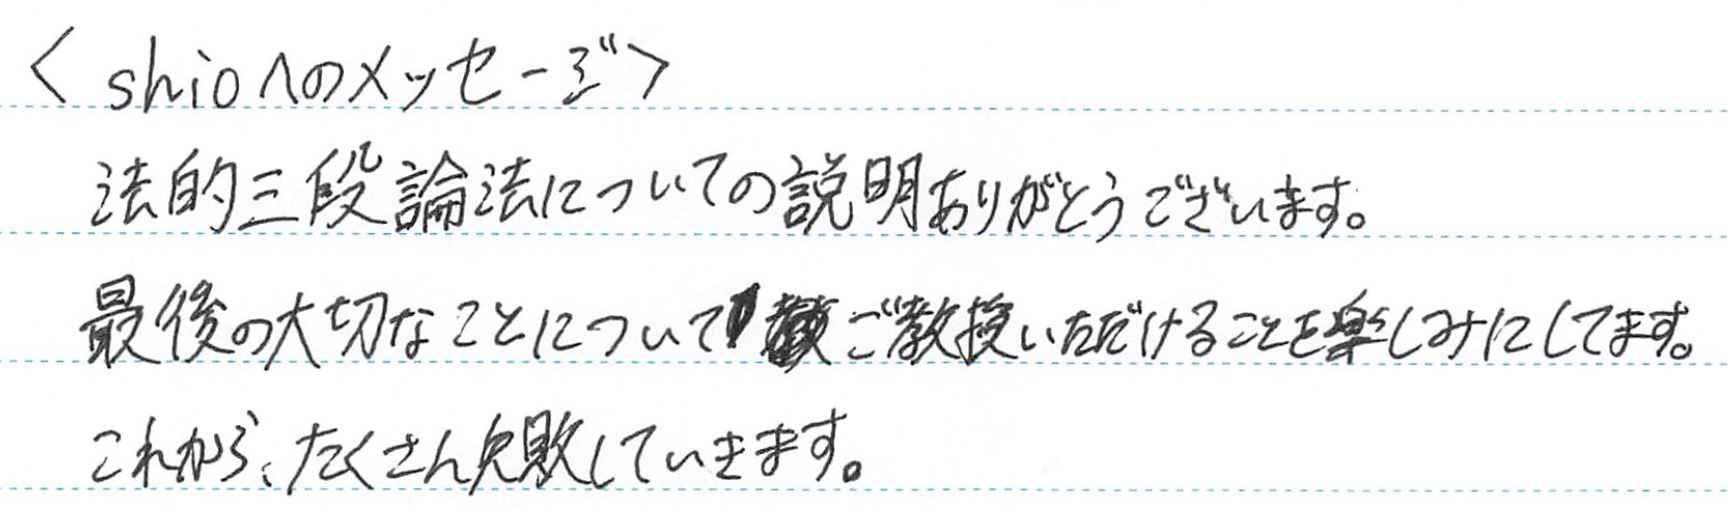 ＜shioへのメッセージ＞
法的三段論法についての説明ありがとうございます。
最後の大切なことについてご教授いただけることを楽しみにしてます。
これから、たくさん失敗していきます。